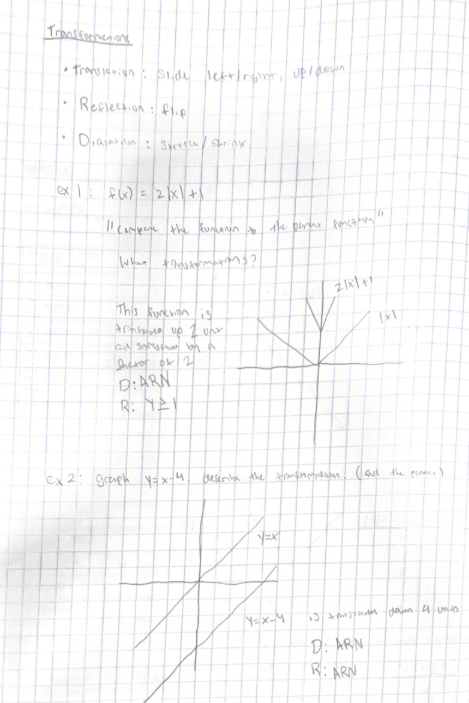 Transformations
• Translation : Slide left/right, up/down
• Reflection : flip
• Dialation : Stretch / Shrink
ex 1 : f(x) = 2|x| + 1
"Compare the function to the parent function"
What transformations?
2|x|+1
|x|
This function is
translated up 1 unit
and stretched by a
factor of 2
D: ARN
R: Y≥1
ex 2: graph y=x-4, describe the transformation. (and the parent)
y=x
y=x-4 is translated down 4 units
D: ARN
R: ARN